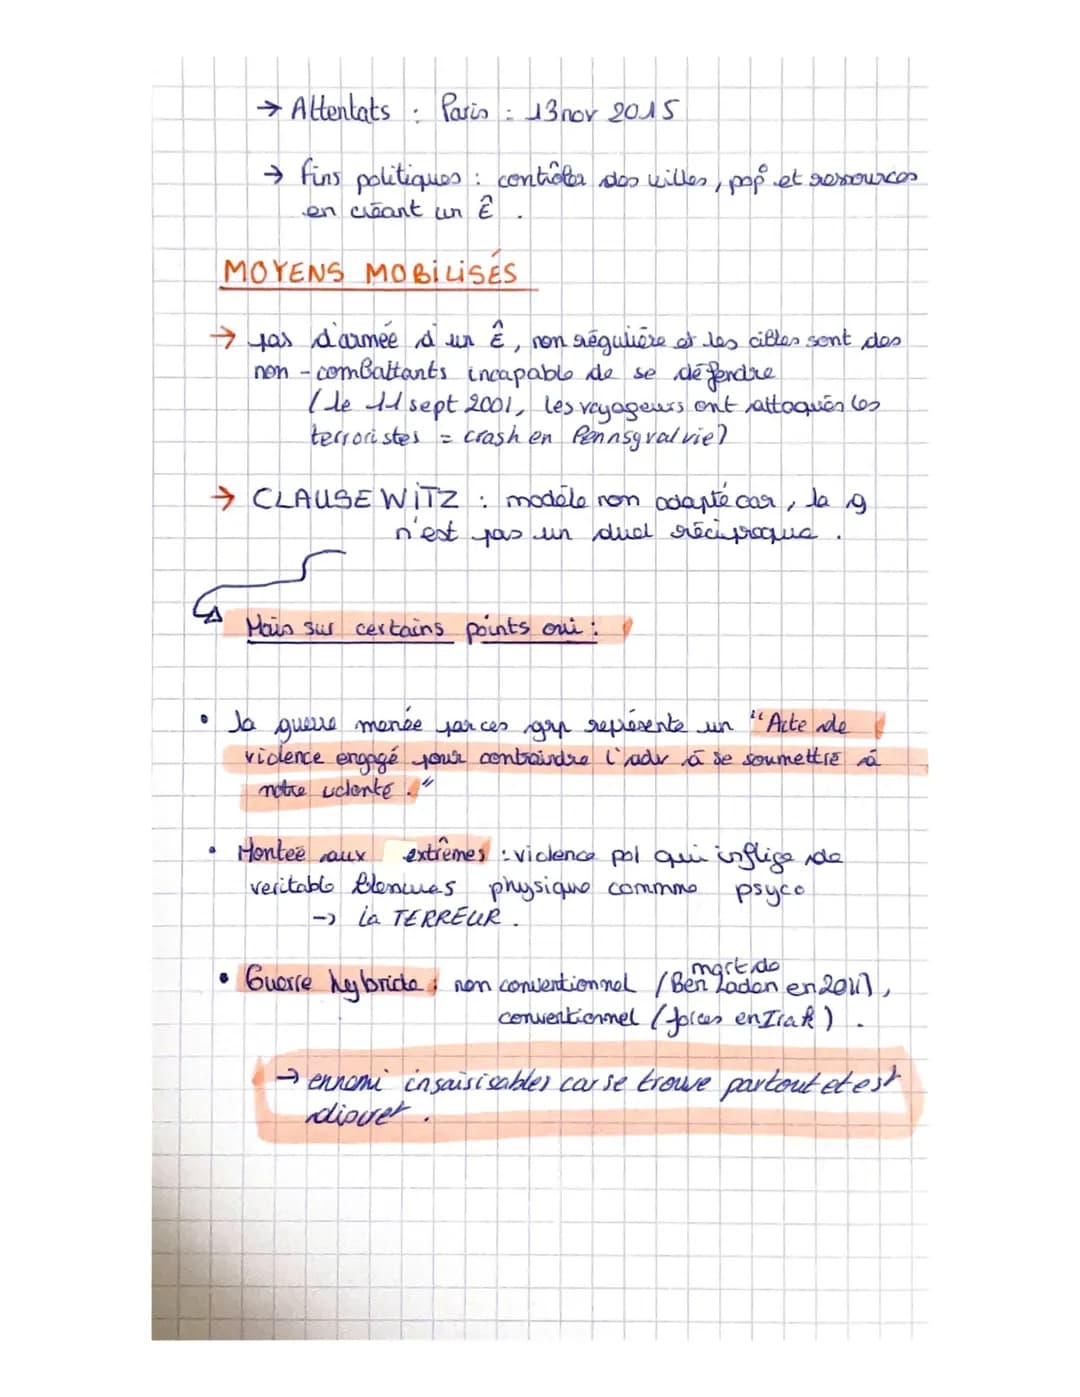 → Attentats : Paris : 13 nov 2015
→ fins politiques : contrôler des villes, pop° et ressources
en créant un Ê .
MOYENS MOBiLiSÉS
→ pas d'armée d'un Ê, non régulière et les cibles sont des
non - comBattants incapable de se défendre
(le 11 sept 2001, les voyageurs ont attaqués les
terroristes = crash en Pennsylvalvie)
→ CLAUSEWiTZ : modèle non adapté car, la g
n'est pas un duel réciproque .
Mais sur certains points oui :
• la guerre menée par ces grp représente un "Acte de
violence engagé pour contraindre l'adv à se soumettre à
notre volonté ."
• Montée aux extrêmes : violence pol qui inflige de
veritable blessures physique commme psyco
-> la TERREUR .
• Guerre hybride : non conventionnel (mort de Ben Laden en 2011),
conventionnel (forces en Irak) .
→ ennemi insaisisables car se trouve partout et est
discret .